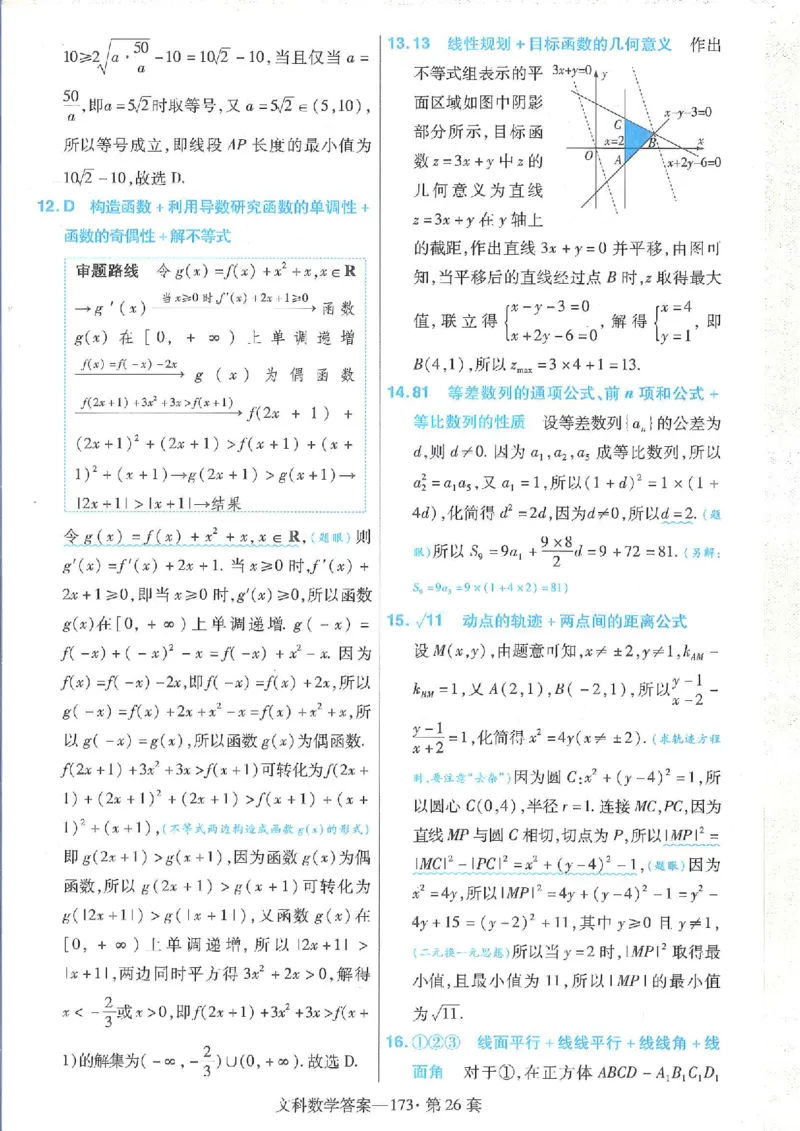 10≥2√(a·50/a)-10=10√2-10,当且仅当a=
50/a,即a=5√2时取等号,又a=5√2∈(5,10),
所以等号成立,即线段AP长度的最小值为
10√2-10,故选D.
12.D 构造函数+利用导数研究函数的单调性+
函数的奇偶性+解不等式
审题路线 令g(x)=f(x)+x²+x,x∈R
→g′(x) 当x≥0时,f′(x)+2x+1≥0→函数
g(x)在[0,+∞)上单调递增
f(x)=f(-x)-2x→g(x)为偶函数
f(2x+1)+3x²+3x>f(x+1)→f(2x+1)+
(2x+1)²+(2x+1)>f(x+1)+(x+
1)²+(x+1)→g(2x+1)>g(x+1)→
|2x+1|>|x+1|→结果
令g(x)=f(x)+x²+x,x∈R,(题眼)则
g′(x)=f′(x)+2x+1.当x≥0时,f′(x)+
2x+1≥0,即当x≥0时,g′(x)≥0,所以函数
g(x)在[0,+∞)上单调递增.g(-x)=
f(-x)+(-x)²-x=f(-x)+x²-x.因为
f(x)=f(-x)-2x,即f(-x)=f(x)+2x,所以
g(-x)=f(x)+2x+x²-x=f(x)+x²+x,所
以g(-x)=g(x),所以函数g(x)为偶函数.
f(2x+1)+3x²+3x>f(x+1)可转化为f(2x+
1)+(2x+1)²+(2x+1)>f(x+1)+(x+
1)²+(x+1),(不等式两边构造成函数g(x)的形式)
即g(2x+1)>g(x+1),因为函数g(x)为偶
函数,所以g(2x+1)>g(x+1)可转化为
g(|2x+1|)>g(|x+1|),又函数g(x)在
[0,+∞)上单调递增,所以|2x+1|>
|x+1|,两边同时平方得3x²+2x>0,解得
x<-2/3或x>0,即f(2x+1)+3x²+3x>f(x+
1)的解集为(-∞,-2/3)∪(0,+∞).故选D.
13.13 线性规划+目标函数的几何意义 作出
不等式组表示的平
面区域如图中阴影
部分所示,目标函
数z=3x+y中z的
几何意义为直线
z=3x+y在y轴上
3x+y=0
y
x-y-3=0
C
x=2
B
x
O
A
x+2y-6=0
的截距,作出直线3x+y=0并平移,由图可
知,当平移后的直线经过点B时,z取得最大
值,联立得{x-y-3=0 x+2y-6=0,解得{x=4 y=1,即
B(4,1),所以zmax=3×4+1=13.
14.81 等差数列的通项公式、前n项和公式+
等比数列的性质 设等差数列{aₙ}的公差为
d,则d≠0.因为a₁,a₂,a₅成等比数列,所以
a₂²=a₁a₅,又a₁=1,所以(1+d)²=1×(1+
4d),化简得d²=2d,因为d≠0,所以d=2.(题
眼)所以S₉=9a₁+9×8/2 d=9+72=81.(另解:
S₉=9a₅=9×(1+4×2)=81)
15.√11 动点的轨迹+两点间的距离公式
设M(x,y),由题意可知,x≠±2,y≠1,k_AM-
k_BM=1,又A(2,1),B(-2,1),所以(y-1)/(x-2)-
(y-1)/(x+2)=1,化简得x²=4y(x≠±2).(求轨迹方程
时,要注意“去杂”)因为圆C:x²+(y-4)²=1,所
以圆心C(0,4),半径r=1.连接MC,PC,因为
直线MP与圆C相切,切点为P,所以|MP|²=
|MC|²-|PC|²=x²+(y-4)²-1,(题眼)因为
x²=4y,所以|MP|²=4y+(y-4)²-1=y²-
4y+15=(y-2)²+11,其中y≥0且y≠1,
(二元换一元思想)所以当y=2时,|MP|²取得最
小值,且最小值为11,所以|MP|的最小值
为√11.
16.①②③ 线面平行+线线平行+线线角+线
面角 对于①,在正方体ABCD-A₁B₁C₁D₁
文科数学答案—173·第26套